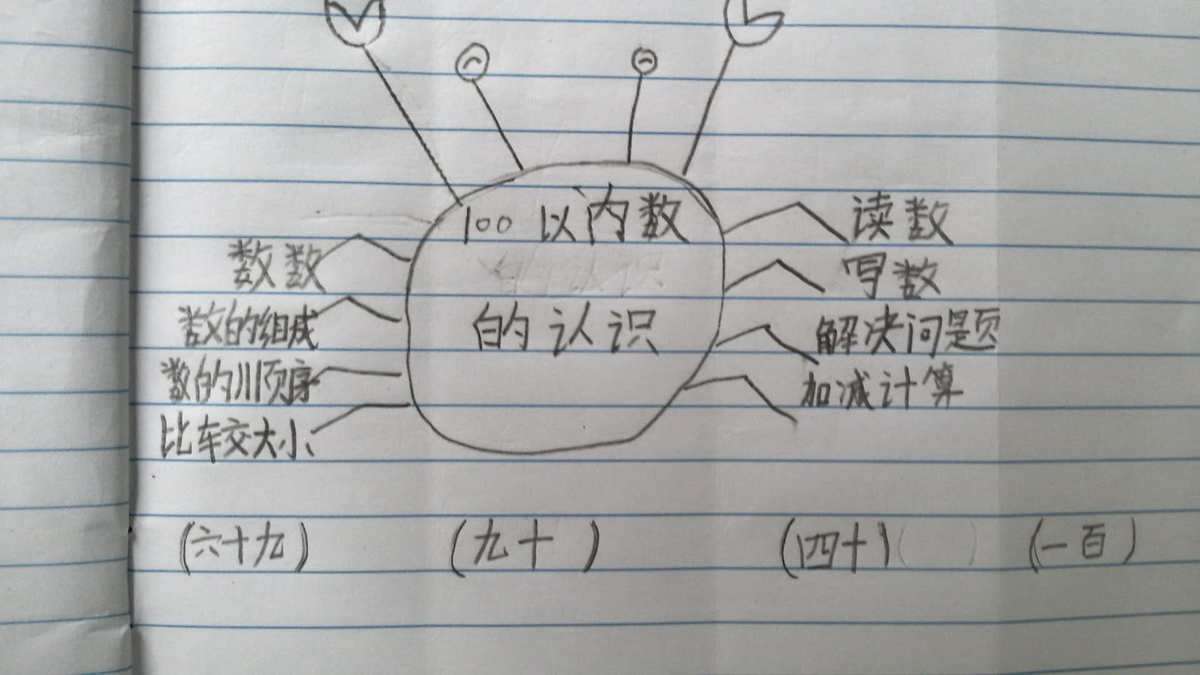 100以内数
的认识
数数
数的组成
数的顺序
比较大小
读数
写数
解决问题
加减计算
(六十九) (九十) (四十) ( ) (一百)